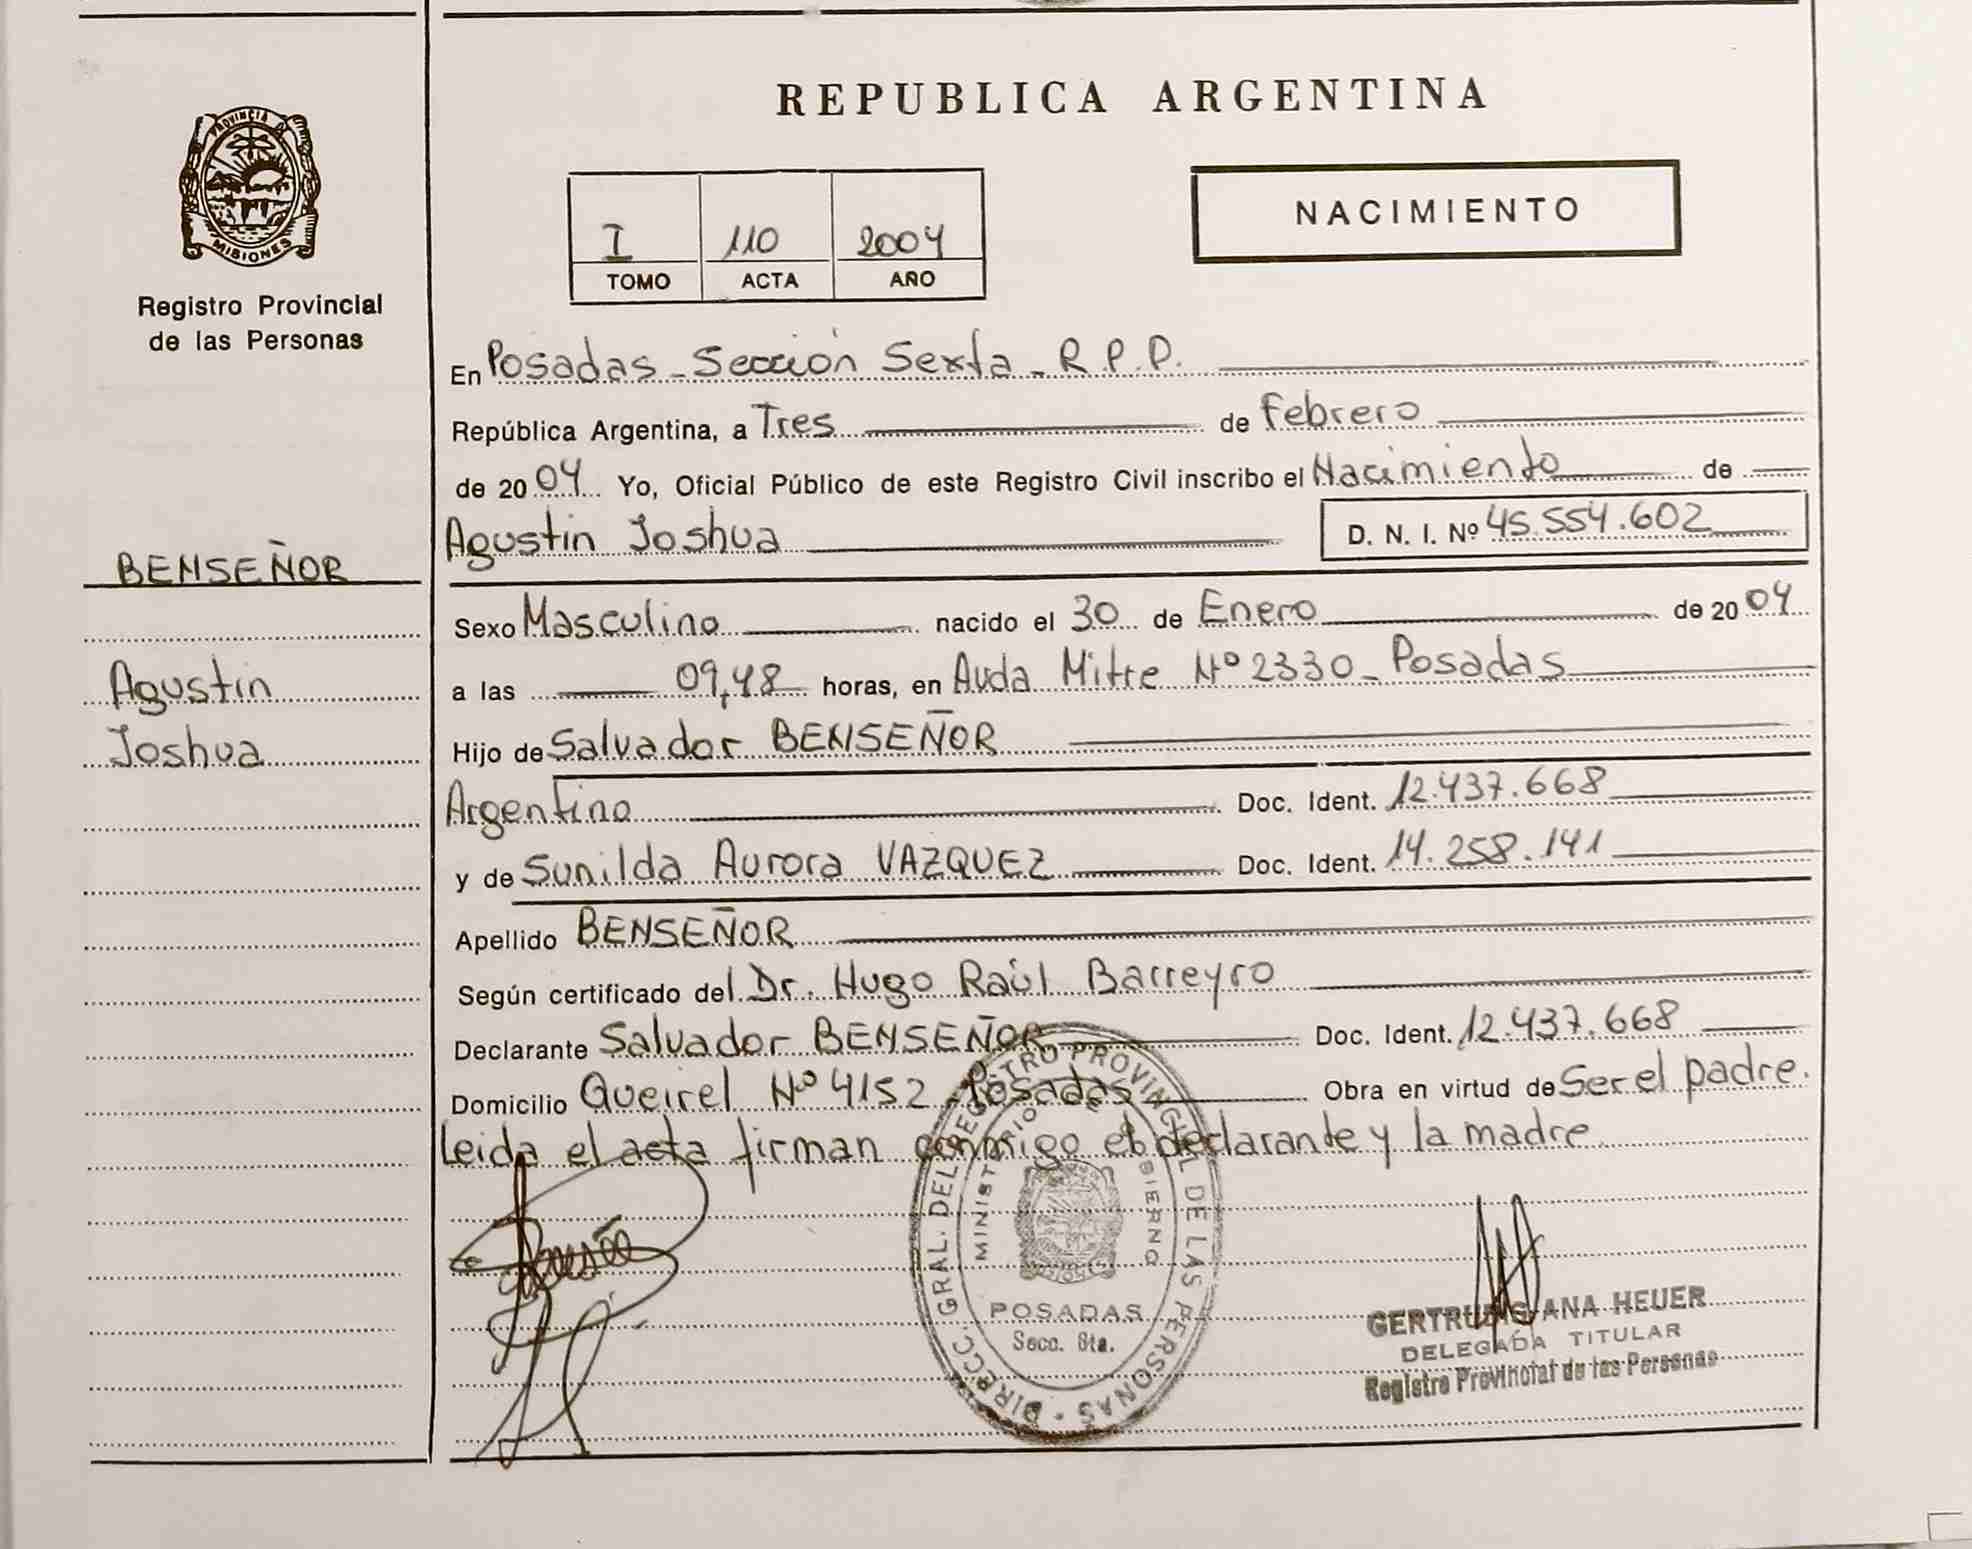 REPUBLICA ARGENTINA
PROVINCIA DE
MISIONES
Registro Provincial
de las Personas
I 110 2004
TOMO ACTA AÑO
NACIMIENTO
En Posadas - Sección Sexta - R.P.P.
República Argentina, a Tres de Febrero
de 2004 Yo, Oficial Público de este Registro Civil inscribo el Nacimiento de
Agustin Joshua D. N. I. Nº 45.554.602
BENSEÑOR
Sexo Masculino nacido el 30 de Enero de 2004
Agustin
a las 09,48 horas, en Avda Mitre Nº 2330 - Posadas
Joshua
Hijo de Salvador BENSEÑOR
Argentino Doc. Ident. 12.437.668
y de Sunilda Aurora VAZQUEZ Doc. Ident. 14.258.141
Apellido BENSEÑOR
Según certificado del Dr. Hugo Raúl Barreyro
Declarante Salvador BENSEÑOR Doc. Ident. 12.437.668
Domicilio Queirel Nº 4152 - Posadas Obra en virtud de Ser el padre.
Leida el acta firman conmigo el declarante y la madre
DIRECC. GRAL. DEL REGISTRO PROVINCIAL DE LAS PERSONAS
MINISTERIO DE GOBIERNO
MISIONES
POSADAS
Secc. 6ta.
GERTRUDIS ANA HEUER
DELEGADA TITULAR
Registro Provincial de las Personas